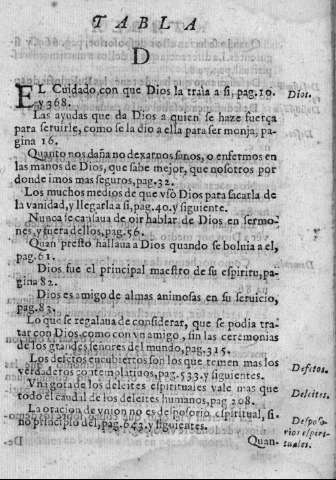 TABLA
D
EL Cuidado con que Dios la traia a si, pag. 19. Dios.
y 368.
Las ayudas que da Dios a quien se haze fuerça
para seruirle, como se la dio a ella para ser monja, pa-
gina 16.
Quanto nos daña no dexarnos sanos, o enfermos en
las manos de Dios, que sabe mejor, que nosotros por
donde imos mas seguros, pag. 32.
Los muchos medios de que vsò Dios para sacarla de
la vanidad, y llegarla a si, pag. 40. y siguiente.
Nunca se cansaua de oir hablar de Dios en sermo-
nes, y fuera dellos, pag. 56.
Quan presto hallaua a Dios quando se boluia a el,
pag. 61.
Dios fue el principal maestro de su espiritu, pa-
gina 82.
Dios es amigo de almas animosas en su seruicio,
pag. 83.
Lo que se regalaua de considerar, que se podia tra-
tar con Dios como con vn amigo, sin las ceremonias
de los grandes señores del mundo, pag. 315.
Los defetos encubiertos son los que temen mas los Defetos.
verdaderos contemplatiuos, pag. 533. y siguientes.
Vna gota de los deleites espirituales vale mas que Deleites.
todo el caudal de los deleites humanos, pag 208.
La oracion de vnion no es desposorio espiritual, si- Desposo-
no principio del, pag. 643. y siguientes. rios espiri-
Quan- tuales.